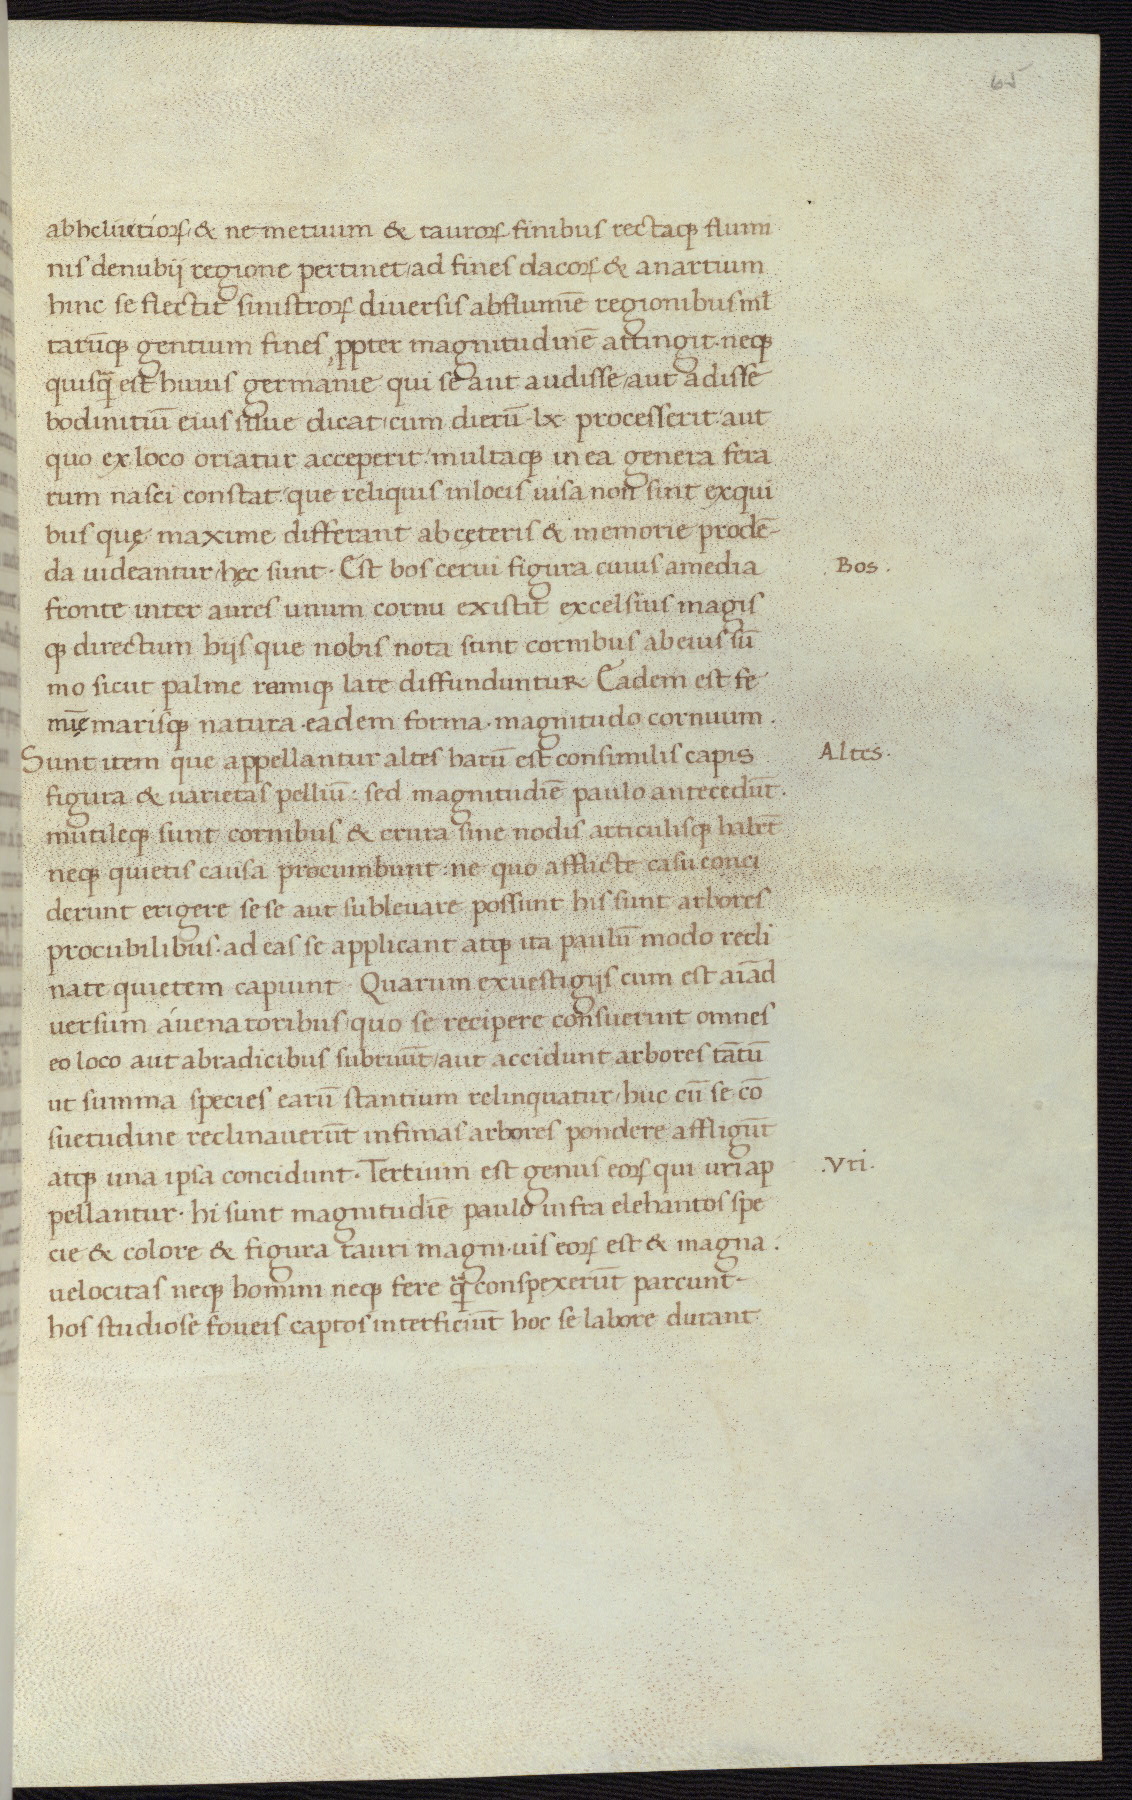 65
abheluetiorꝝ & ne metuum & taurorꝝ finibus rectaqꝫ flumi
nis denubij regione pertinet ad fines dacorꝝ & anartium
hinc se flectit sinistrorꝝ diuersis abflumīe regionibus ml̄
tarūqꝫ gentium fines ꝓpter magnitudinē attingit. neqꝫ
quisqꝫ est huius germanie qui se aut audisse aut adisse
bodinitiū eius silue dicat cum dierū lx processerit aut
quo ex loco oriatur acceperit multaqꝫ in ea genera fera
rum nasci constat que reliquis inlocis uisa non sint exqui
bus quę maxime differant abcęteris & memorie prodē-
da uideantur hęc sunt. Est bos cerui figura cuius amedia
Bos.
fronte inter aures unum cornu existit excelsius magis
qꝫ directum hijs que nobis nota sunt cornibus abeius sū
mo sicut palme ramiqꝫ late diffunduntur. Eadem est fe
minę marisqꝫ natura. eadem forma. magnitudo cornuum.
Sunt item que appellantur altes harū est consimilis capis
Altes.
figura & uarietas pelliū: sed magnitudiē paulo antecedūt.
mutileqꝫ sunt cornibus & crura sine nodis articulisqꝫ habēt
neqꝫ quietis causa procumbunt: ne quo afflicte casu conci
derunt erigere sese aut subleuare possunt his sunt arbores
procubilibus. ad eas se applicant atqꝫ ita paulū modo recli
nate quietem capiunt. Quarum exuestigijs cum est aīad
uersum áuenatoribus quo se recipere consuerint omnes
eo loco aut abradicibus subruūt aut accidunt arbores tātū
ut summa species earū stantium relinquatur huc cū se cō
suetudine reclinauerūt infimas arbores pondere affligūt
atqꝫ una ipsa concidunt. Tertium est genus eorꝝ qui uri ap
.Vri.
pellantur. hi sunt magnitudīe paulo infra elehantos spe
cie & colore & figura tauri magni. uis eorꝝ est & magna.
uelocitas neqꝫ homini neqꝫ fere quā conspexerūt parcunt.
hos studiose foueis captos interficiūt hoc se labore durant